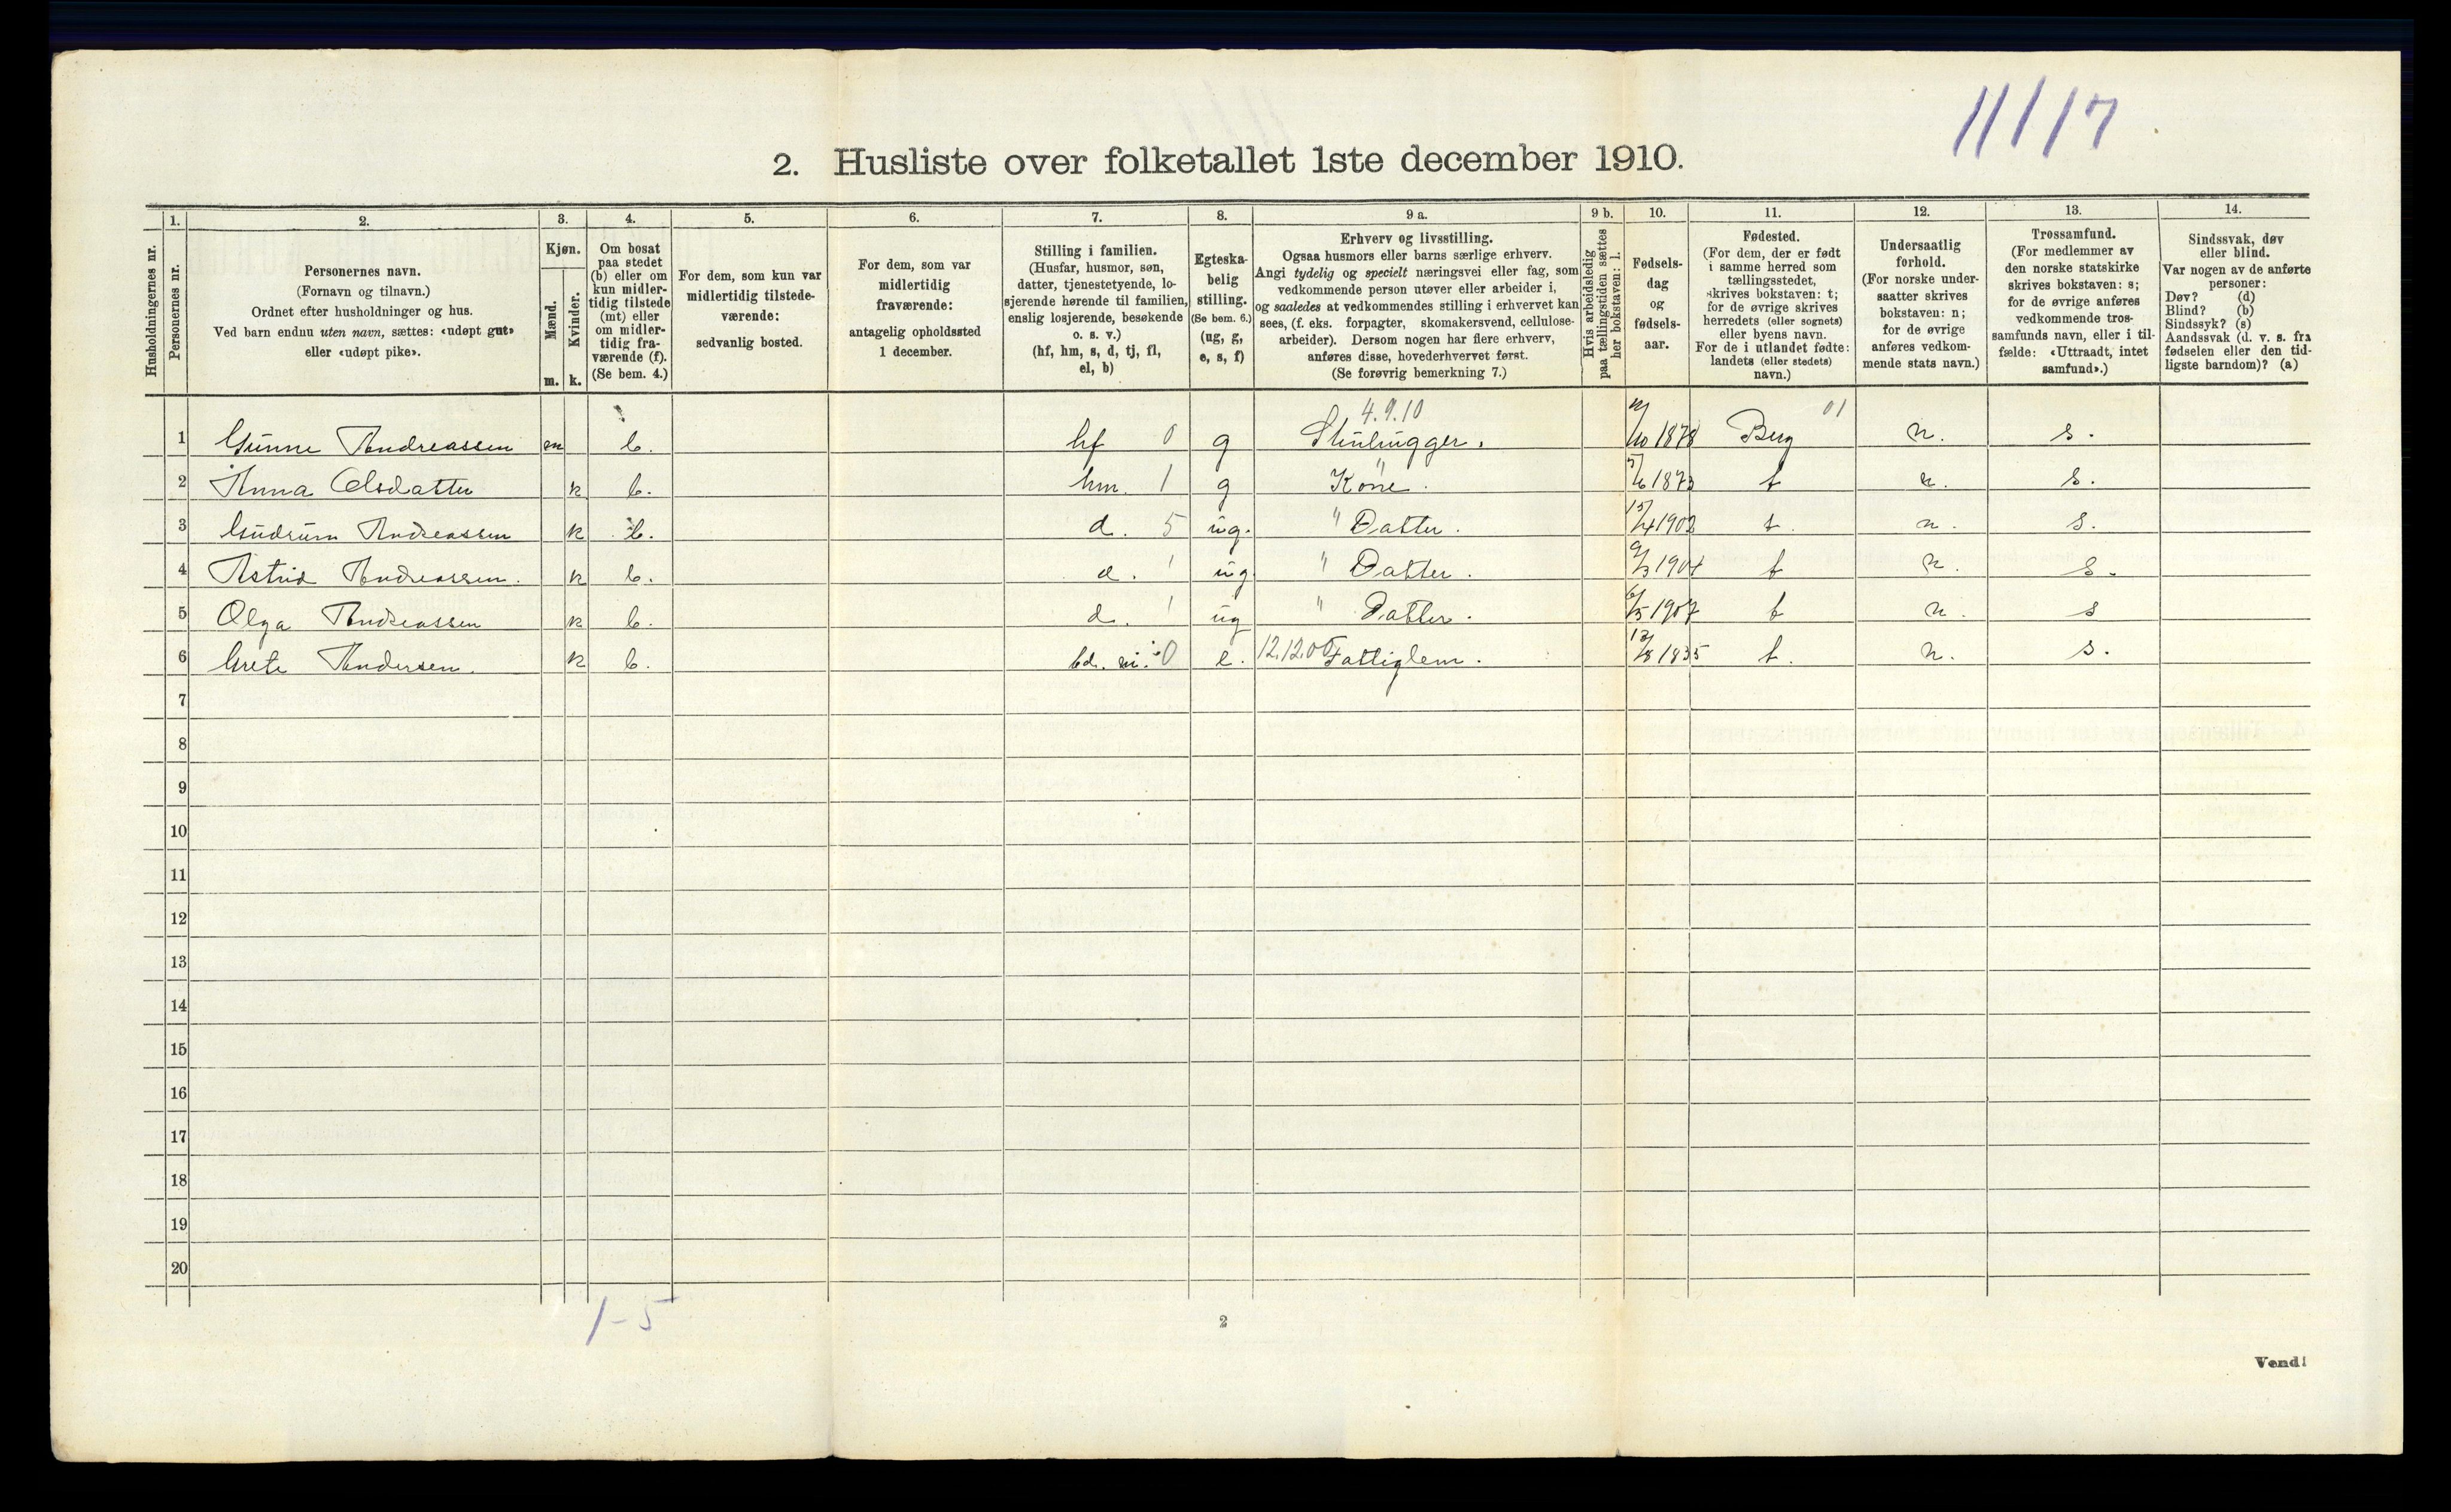 11/17
2. Husliste over folketallet 1ste december 1910.
1. 2. 3. 4. 5. 6. 7. 8. 9 a. 9 b. 10. 11. 12. 13. 14.
Husholdningernes nr.
Personernes nr.
Personernes navn.
(Fornavn og tilnavn.)
Ordnet efter husholdninger og hus.
Ved barn endnu uten navn, sættes: «udøpt gut»
eller «udøpt pike».
Kjøn.
Mænd.
Kvinder.
m. k.
Om bosat
paa stedet
(b) eller om
kun midler-
tidig tilstede
(mt) eller
om midler-
tidig fra-
værende (f).
(Se bem. 4.)
For dem, som kun var
midlertidig tilstede-
værende:
sedvanlig bosted.
For dem, som var
midlertidig
fraværende:
antagelig opholdssted
1 december.
Stilling i familien.
(Husfar, husmor, søn,
datter, tjenestetyende, lo-
sjerende hørende til familien,
enslig losjerende, besøkende
o. s. v.)
(hf, hm, s, d, tj, fl,
el, b)
Egteska-
belig
stilling.
(Se bem. 6.)
(ug, g,
e, s, f)
Erhverv og livsstilling.
Ogsaa husmors eller barns særlige erhverv.
Angi tydelig og specielt næringsvei eller fag, som
vedkommende person utøver eller arbeider i,
og saaledes at vedkommendes stilling i erhvervet kan
sees, (f. eks. forpagter, skomakersvend, cellulose-
arbeider). Dersom nogen har flere erhverv,
anføres disse, hovederhvervet først.
(Se forøvrig bemerkning 7.)
Hvis arbeidsledig
paa tællingstiden sættes
her bokstaven: l.
Fødsels-
dag
og
fødsels-
aar.
Fødested.
(For dem, der er født
i samme herred som
tællingsstedet,
skrives bokstaven: t;
for de øvrige skrives
herredets (eller sognets)
eller byens navn.
For de i utlandet fødte:
landets (eller stedets)
navn.)
Undersaatlig
forhold.
(For norske under-
saatter skrives
bokstaven: n;
for de øvrige
anføres vedkom-
mende stats navn.)
Trossamfund.
(For medlemmer av
den norske statskirke
skrives bokstaven: s;
for de øvrige anføres
vedkommende tros-
samfunds navn, eller i til-
fælde: «Uttraadt, intet
samfund».)
Sindssvak, døv
eller blind.
Var nogen av de anførte
personer:
Døv? (d)
Blind? (b)
Sindssyk? (s)
Aandssvak (d. v. s. fra
fødselen eller den tid-
ligste barndom)? (a)
4.9.10 01
1 Gunne Andreassen m b. hf 0 g Stenhugger. 1878 Berg n. s.
2 Anna Olsdatter k b. hm. 1 g " Kone. 1873 t n. s.
3 Gudrun Andreassen k b. d. 5 ug. " Datter. 15/4 1902 t. n. s.
4 Astrid Andreassen. k b. d. 1 ug " Datter. 9/3 1904 t n. s.
5 Olga Andreassen k b. d. 1 ug " Datter. 6/5 1907 t n. s
6 Grete Andersen. k b. 0 e. 12.12.00 Fattiglem. 1835 t. n. s.
7
8
9
10
11
12
13
14
15
16
17
18
19
20
1-5
2
Vend!